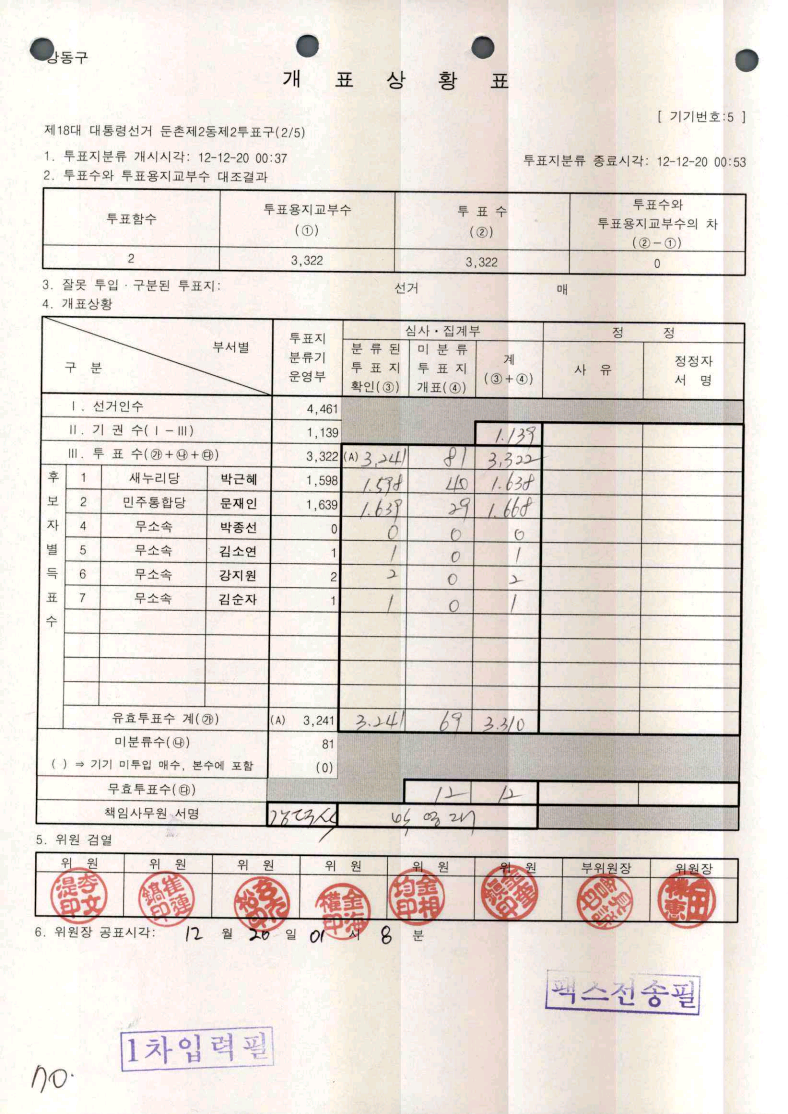 강동구
개 표 상 황 표
[ 기기번호:5 ]
제18대 대통령선거 둔촌제2동제2투표구(2/5)
1. 투표지분류 개시시각: 12-12-20 00:37 투표지분류 종료시각: 12-12-20 00:53
2. 투표수와 투표용지교부수 대조결과
투표함수 투표용지교부수 (①) 투 표 수 (②) 투표수와 투표용지교부수의 차 (②-①)
2 3,322 3,322 0
3. 잘못 투입 · 구분된 투표지: 선거 매
4. 개표상황
구 분 부서별 투표지 분류기 운영부 심사·집계부 정 정
분 류 된 투 표 지 확인(③) 미 분 류 투 표 지 개표(④) 계 (③+④) 사 유 정정자 서 명
Ⅰ. 선거인수 4,461
Ⅱ. 기 권 수(Ⅰ-Ⅲ) 1,139 1.139
Ⅲ. 투 표 수(㉮+㉯+㉰) 3,322 (A) 3,241 81 3,322
후보자별득표수
1 새누리당 박근혜 1,598 1.598 40 1.638
2 민주통합당 문재인 1,639 1.639 29 1.668
4 무소속 박종선 0 0 0 0
5 무소속 김소연 1 1 0 1
6 무소속 강지원 2 2 0 2
7 무소속 김순자 1 1 0 1
유효투표수 계(㉮) (A) 3,241 3.241 69 3.310
미분류수(㉯) 81
( ) ⇒ 기기 미투입 매수, 본수에 포함 (0)
무효투표수(㉰) 12 12
책임사무원 서명
5. 위원 검열
위 원 위 원 위 원 위 원 위 원 위 원 부위원장 위원장
6. 위원장 공표시각: 12 월 20 일 01 시 8 분
팩스전송필
1차입력필